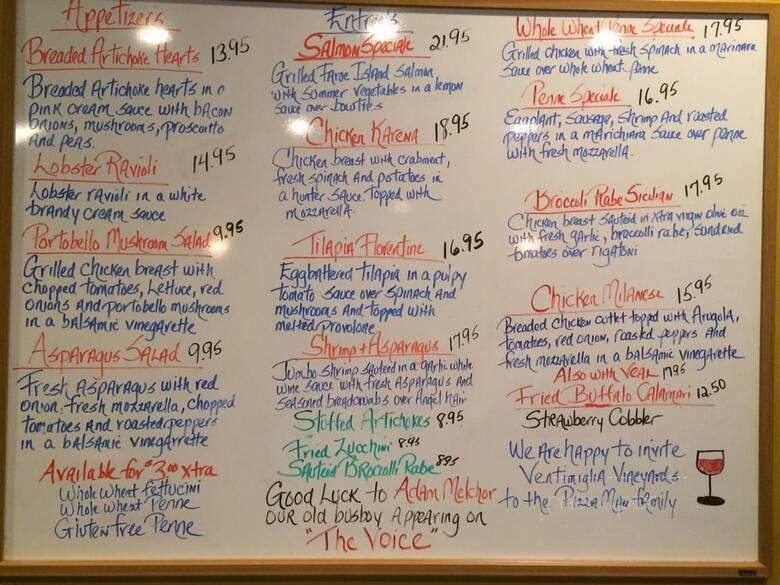 Appetizers
Breaded Artichoke Hearts 13.95
Breaded Artichoke hearts in a
pink cream sauce with bacon
onions, mushrooms, prosciutto
and peas.
Lobster Ravioli 14.95
Lobster ravioli in a white
brandy cream sauce
Portobello Mushroom Salad 9.95
Grilled chicken breast with
chopped tomatoes, Lettuce, red
onions and portobello mushrooms
in a balsamic vinegarette
Asparagus Salad 9.95
Fresh Asparagus with red
onion, fresh mozzarella, chopped
tomatoes and roasted peppers
in a balsamic vinegarrette
Available for $3.00 xtra
Whole wheat fettucini
Whole wheat Penne
Gluten free Penne
Entree's
Salmon Speciale 21.95
Grilled Faroe Island Salmon
with summer vegetables in a lemon
sauce over bowties
Chicken Karena 18.95
Chicken breast with crabmeat,
fresh spinach and potatoes in
a hunter sauce. topped with
mozzarella.
Tilapia Florentine 16.95
Eggbattered tilapia in a pulpy
tomato sauce over spinach and
mushrooms and topped with
melted provolone
Shrimp + Asparagus 17.95
Jumbo shrimp sauteed in a garlic white
wine sauce with fresh asparagus and
seasoned breadcrumbs over Angel hair
Stuffed Artichokes 8.95
Fried Zucchini 8.95
Sauteid Broccolli Rabe 8.95
Good Luck to Adam Melchor
our old busboy Appearing on
"The Voice"
Whole Wheat Penne Speciale 17.95
Grilled chicken with fresh spinach in a marinara
sauce over whole wheat penne
Penne Speciale 16.95
Eggplant, sausage, shrimp and roasted
peppers in a marichiara sauce over penne
with fresh mozzarella.
Broccoli Rabe Sicilian 17.95
Chicken breast sauteed in xtra virgin olive oil
with fresh garlic, broccolli rabe, sundried
tomatoes over rigatoni
Chicken Milanese 15.95
Breaded chicken cutlet topped with Arugola,
tomatoes, red onion, roasted peppers and
fresh mozzarella in a balsamic vinegarette
Also with Veal 17.95
Fried Buffalo Calamari 12.50
Strawberry Cobbler
We Are happy to invite
Ventimiglia Vineyards
to the Pizza Man family